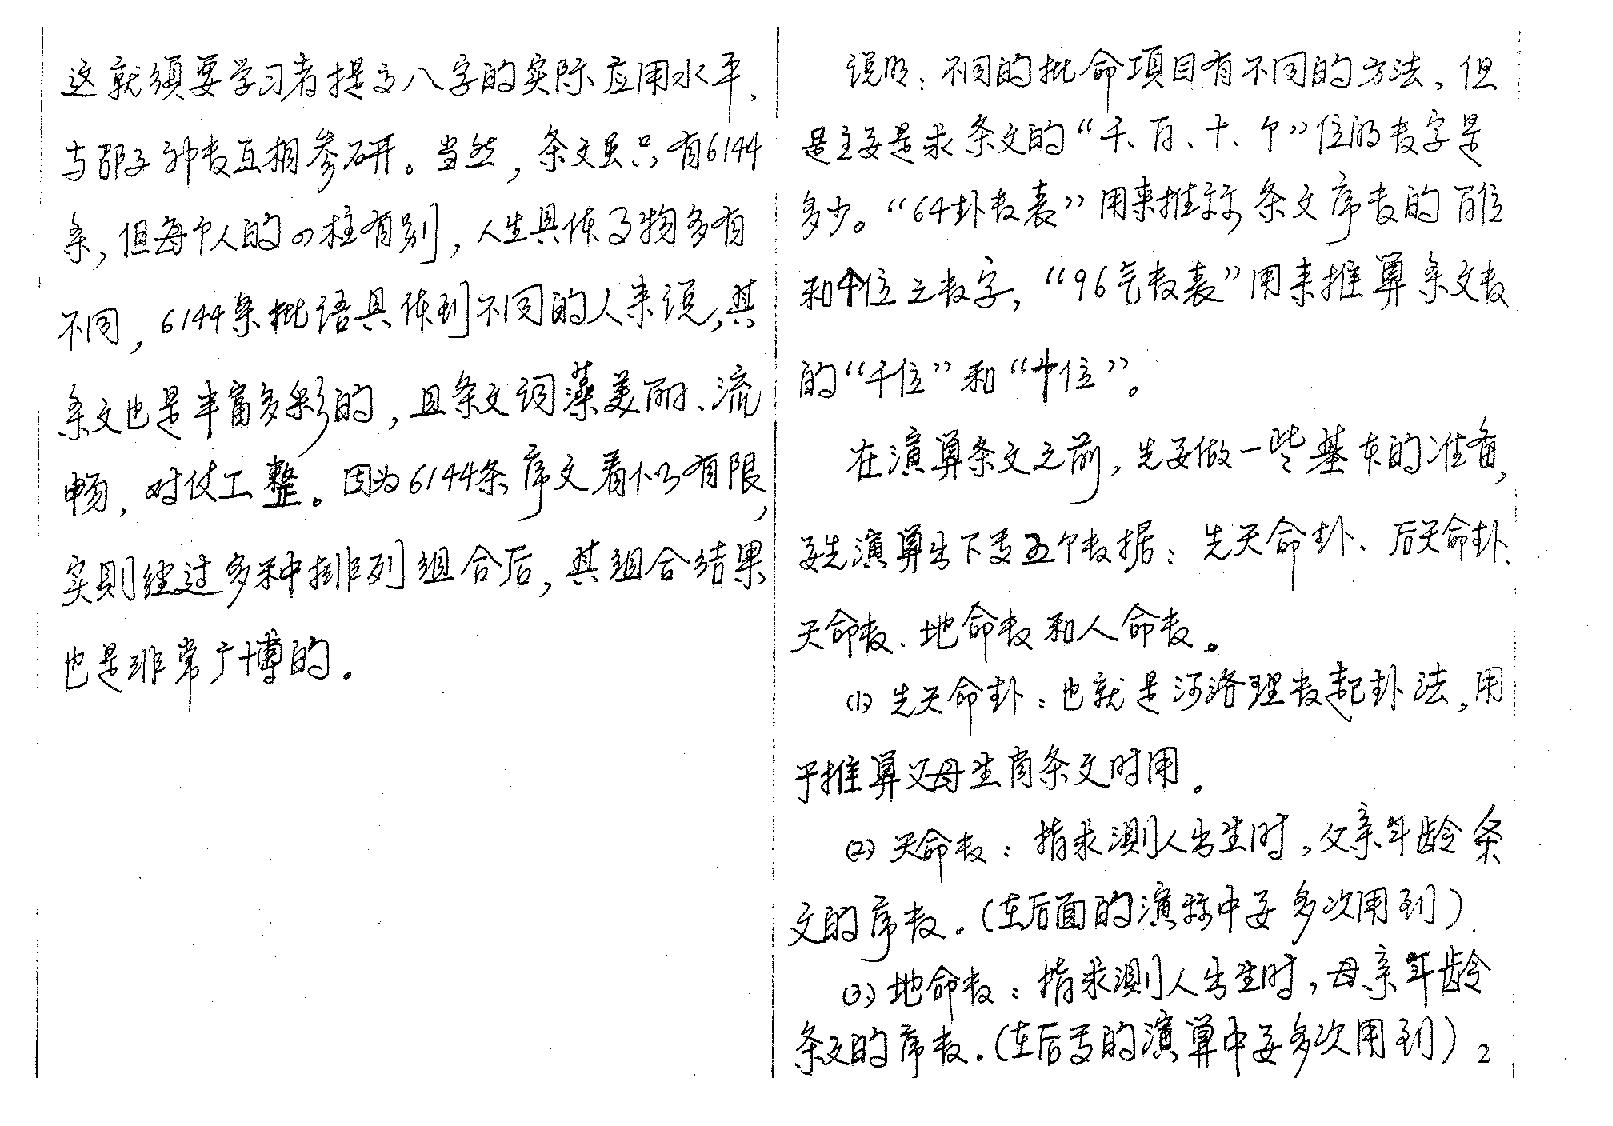 这就须要学习者提高八字的实际应用水平、
与邵子神数互相参研。当然，条文虽只有6144
条，但每个人的四柱有别，人生具体事物多有
不同，6144条批语具体到不同的人来说，其
条文也是丰富多彩的，且条文词藻美丽、流
畅，对仗工整。因为6144条序文看似有限，
实则经过多种排列组合后，其组合结果
也是非常广博的。
说明：不同的批命项目有不同的方法，但
是主要是求条文的“千、百、十、个”位的数字是
多少。“64卦数表”用来推算条文序数的百位
和个位之数字，“96气数表”用来推算条文数
的“千位”和“十位”。
在演算条文之前，先要做一些基本的准备，
要先演算出下面五个数据：先天命卦、后天命卦、
天命数、地命数和人命数。
(1) 先天命卦：也就是河洛理数起卦法，用
于推算父母生肖条文时用。
(2) 天命数：指求测人出生时，父亲年龄条
文的序数。（在后面的演算中要多次用到）
(3) 地命数：指求测人出生时，母亲年龄
条文的序数.（在后面的演算中要多次用到）2